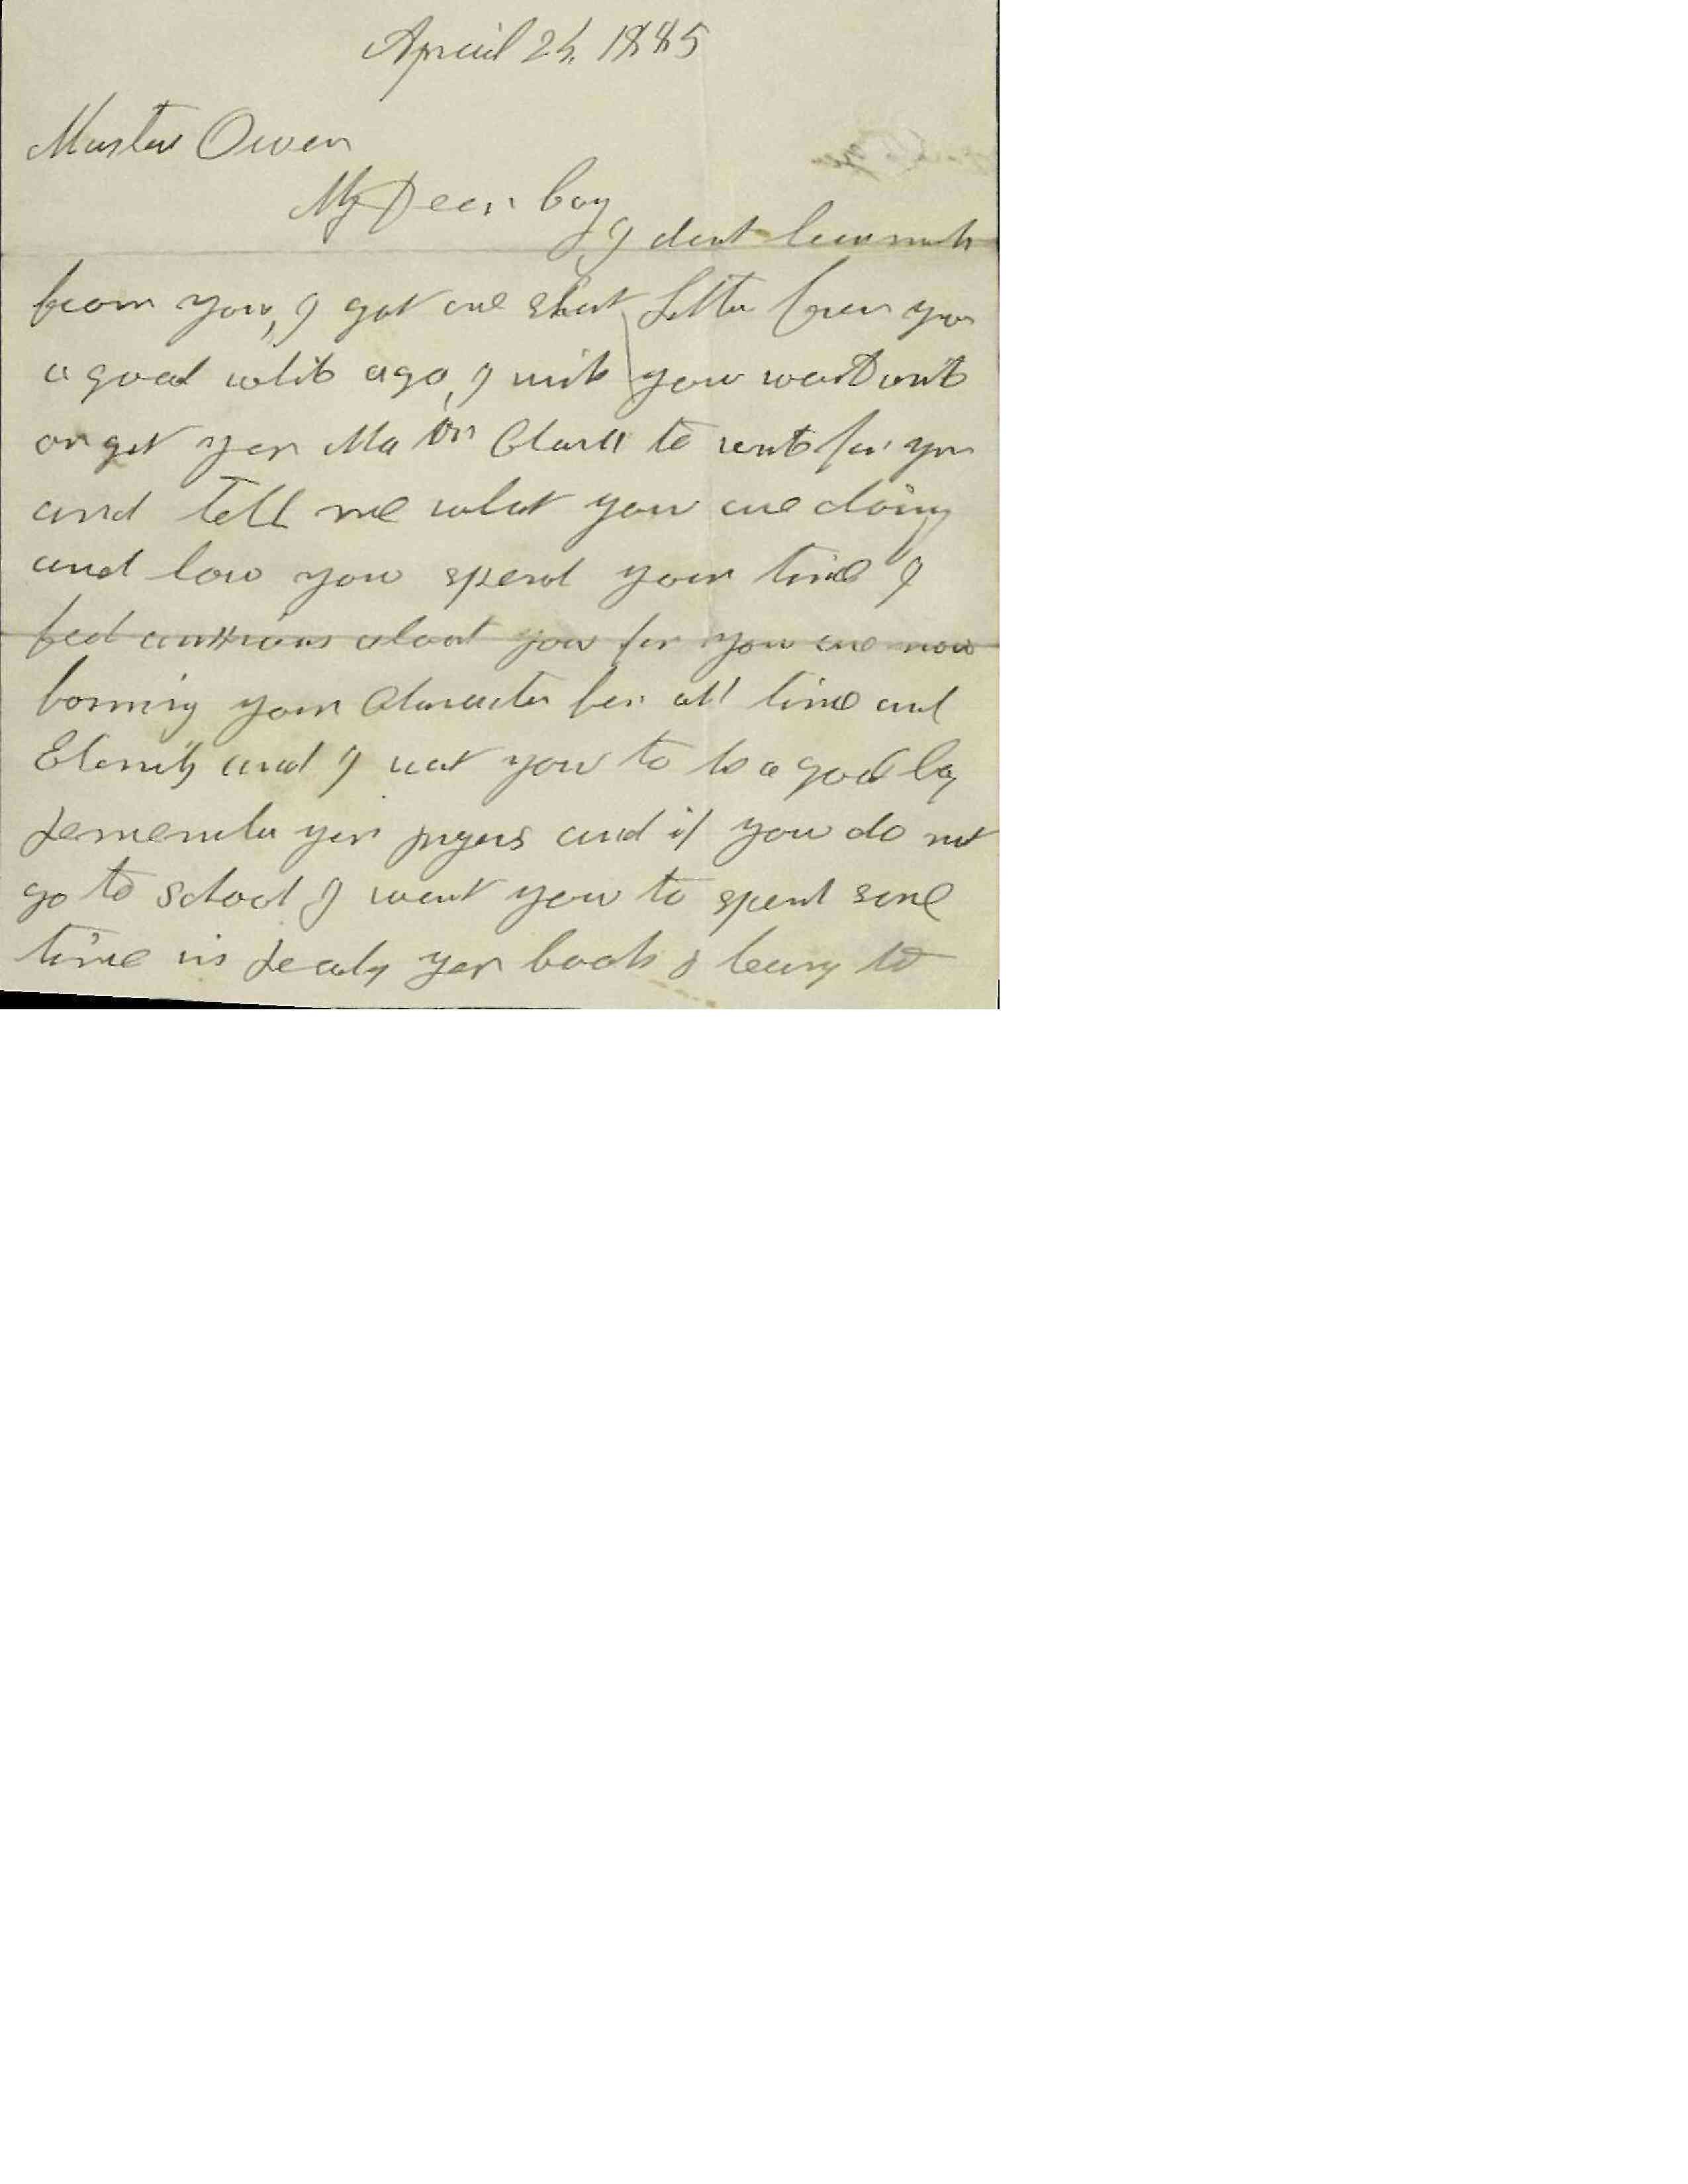 April 25, 1885
Master Owen
My Dear boy
I dont hear much
from you, I got one short letter from you
a good while ago, I wish you would write
or get your Ma or Clark to write for you
and tell me what you are doing
and how you spend your time I
feel anxious about you for you are now
forming your Character for all time and
Eternity and I want you to be a good boy
remember your prayers and if you do not
go to school I want you to spend some
time in ready your books & learn to